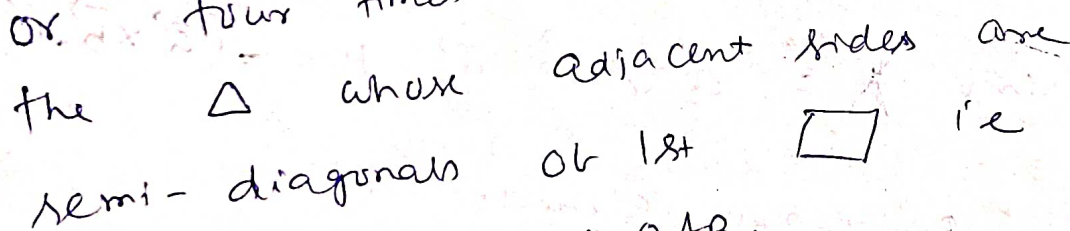 or four
the △ whose adjacent sides are
semi-diagonals of 1st ▱ i.e